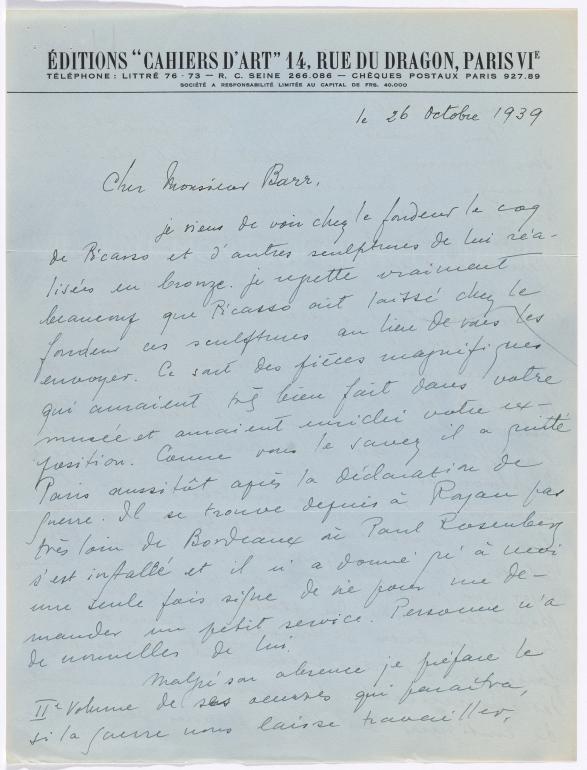 ÉDITIONS "CAHIERS D'ART" 14, RUE DU DRAGON, PARIS VIE
TÉLÉPHONE : LITTRÉ 76-73 — R. C. SEINE 266.086 — CHÈQUES POSTAUX PARIS 927.89
SOCIÉTÉ A RESPONSABILITÉ LIMITÉE AU CAPITAL DE FRS. 40.000
le 26 Octobre 1939
Cher Monsieur Barr,
je viens de voir chez le fondeur le coq
de Picasso et d'autres sculptures de lui réa-
lisées en bronze. je regrette vraiment
beaucoup que Picasso ait laissé chez le
fondeur ces sculptures au lieu de vous les
envoyer. Ce sont des pièces magnifiques
qui auraient très bien fait dans votre
musée et auraient enrichi votre ex-
position. Comme vous le savez il a quitté
Paris aussitôt après la déclaration de
guerre. Il se trouve depuis à Royan pas
très loin de Bordeaux où Paul Rosenberg
s'est installé et il n'a donné qu'à moi
une seule fois signe de vie pour me de-
mander un petit service. Personne n'a
de nouvelles de lui.
Malgré son absence je prépare le
IIe Volume de ses oeuvres qui paraîtra,
si la guerre nous laisse travailler,